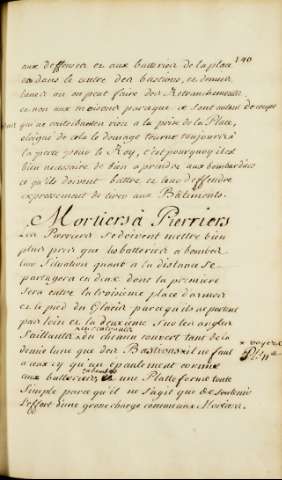 140
aux deffenses et aux batteries de la place
et dans le centre des bastions, et demies
lunes ou on peut faire des Retranchements
et non aux maisons parce que ce sont autant de coups
qui ne contribuent en rien a la prise de la Place,
de cela le domage tourne toujours à
la perte pour le Roy, c'est pourquoy il est
bien necessaire de bien aprendre aux bombardiers
ce qu'ils doivent battre et leur deffendre
expressement de tirer aux Bâtiments.
Mortiers à Pierriers
Les Pierriers se doivent mettre bien
plus pres que les batteries a bombes
leur Situation quant a la distance se
partagera en deux dont la premiere
Sera entre la troisieme place d'armes
et le pied du Glacis parce qu'ils ne portent
pas loin et la deuxieme Sur les angles
Saillants du chemin couvert tant de la
demie lune que des Bastions il ne faut
a ceux cy qu'un epaulement comme
aux batteries et une Platteforme toute
Simple parce qu'il ne s'agit que de soutenir
l'effort d'une grosse charge comme aux Mortiers.
* voyez